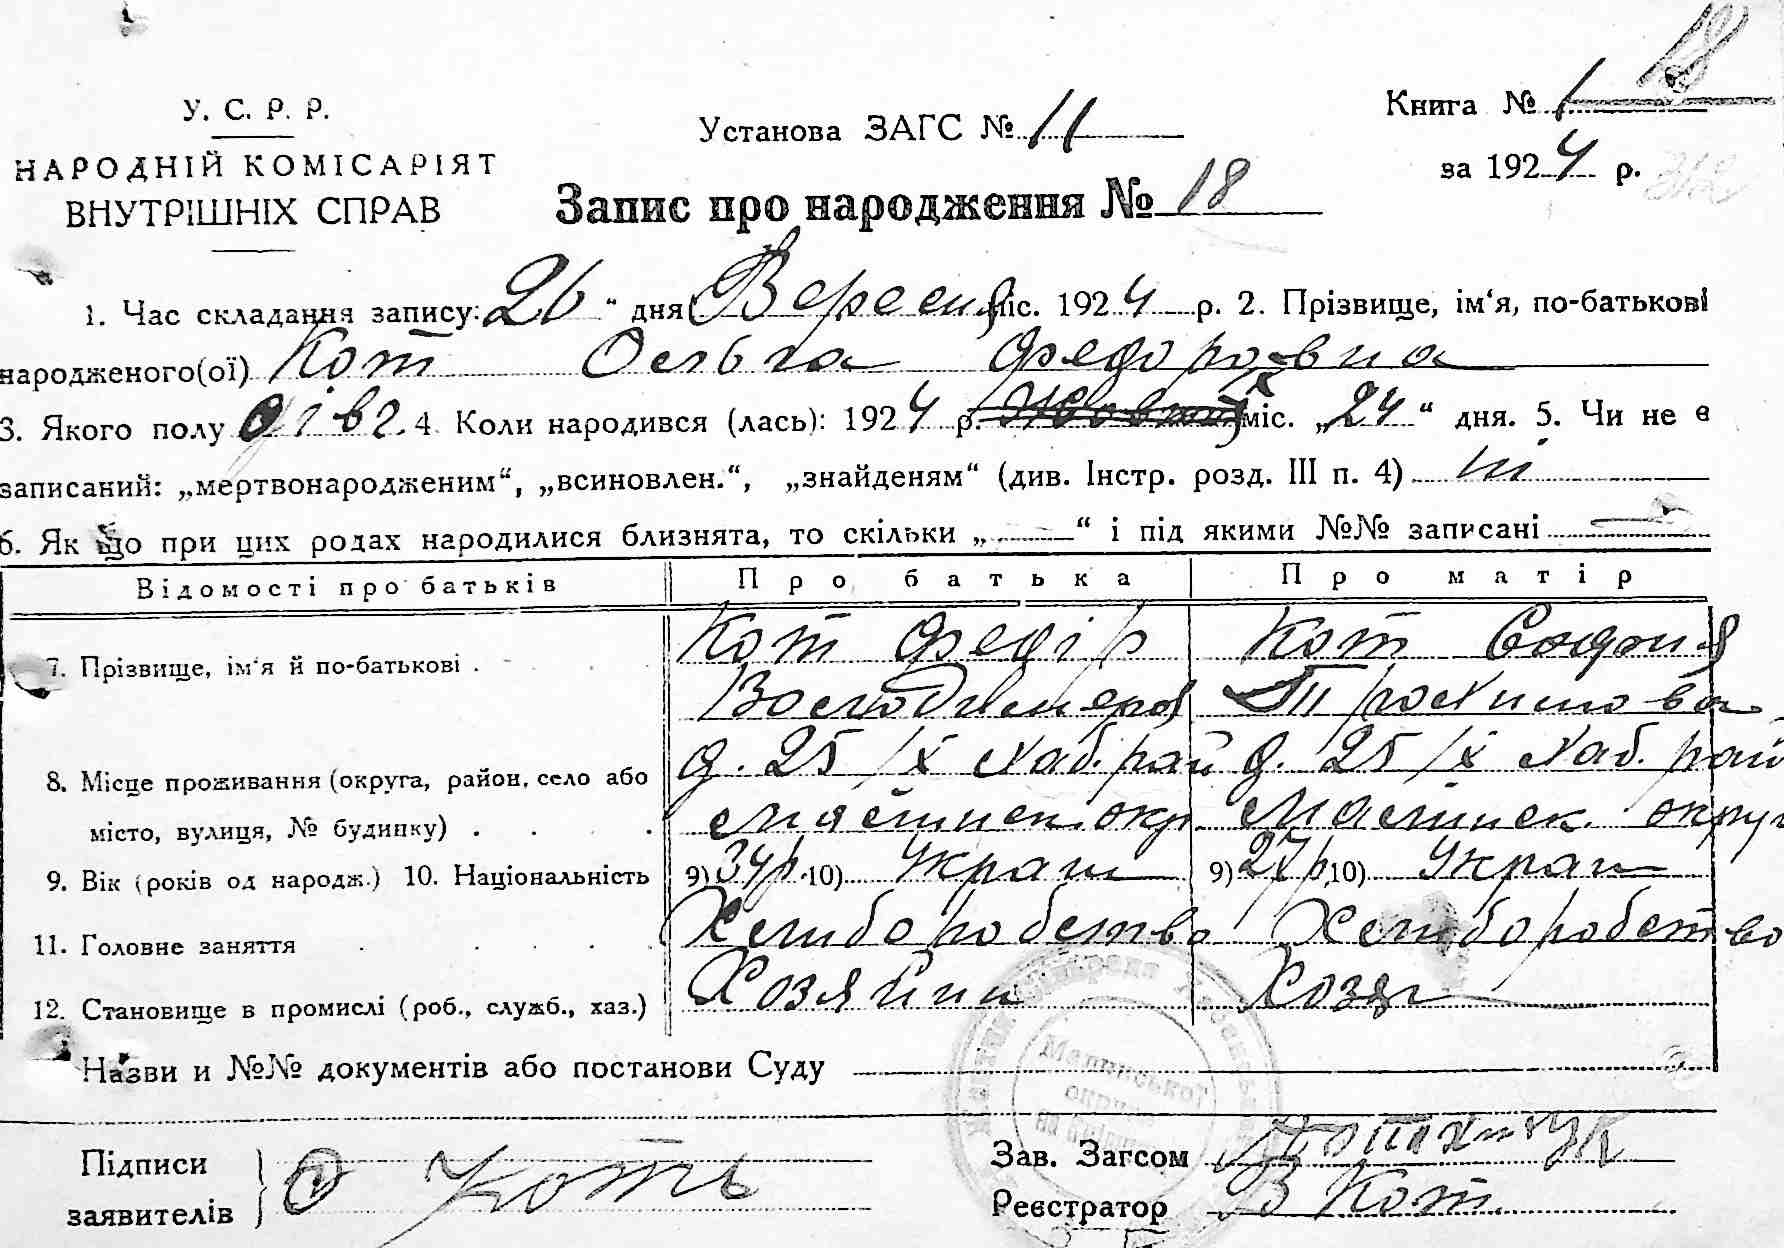 18
У. С. Р. Р.
НАРОДНІЙ КОМІСАРІЯТ
ВНУТРІШНІХ СПРАВ
Установа ЗАГС № 11
Книга № 1
за 1924 р.
Запис про народження № 18
1. Час складання запису: 26 " дня Вересня міс. 1924 р. 2. Прізвище, ім'я, по-батькові
народженого(ої) Кот Ольга Федоровна
3. Якого полу дівч. 4. Коли народився (лась): 1924 р. міс. „24" дня. 5. Чи не є
записаний: „мертвонародженим", „всиновлен.", „знайденям" (див. Інстр. розд. III п. 4) ні
6. Як що при цих родах народилися близнята, то скільки „ " і під якими №№ записані
Відомості про батьків Про батька Про матір
7. Прізвище, ім'я й по-батькові . Кот Федір Кот София
Володимеров Трохимовна
8. Місце проживання (округа, район, село або д. 25 /X Хаб. рай д. 25 /X Хаб. рай
місто, вулиця, № будинку) . Малинск. окр. Малинск. округ
9. Вік (років од народж.) 10. Національність 9) 34 р. 10) Украін 9) 27 р. 10) Украін
11. Головне заняття Хлиборобство Хлиборобство
12. Становище в промислі (роб., служб., хаз.) Хозяйин Хозяй
Назви и №№ документів або постанови Суду
Малинської
округи
Підписи
заявителів
Котъ
Зав. Загсом
Реєстратор В Кот.